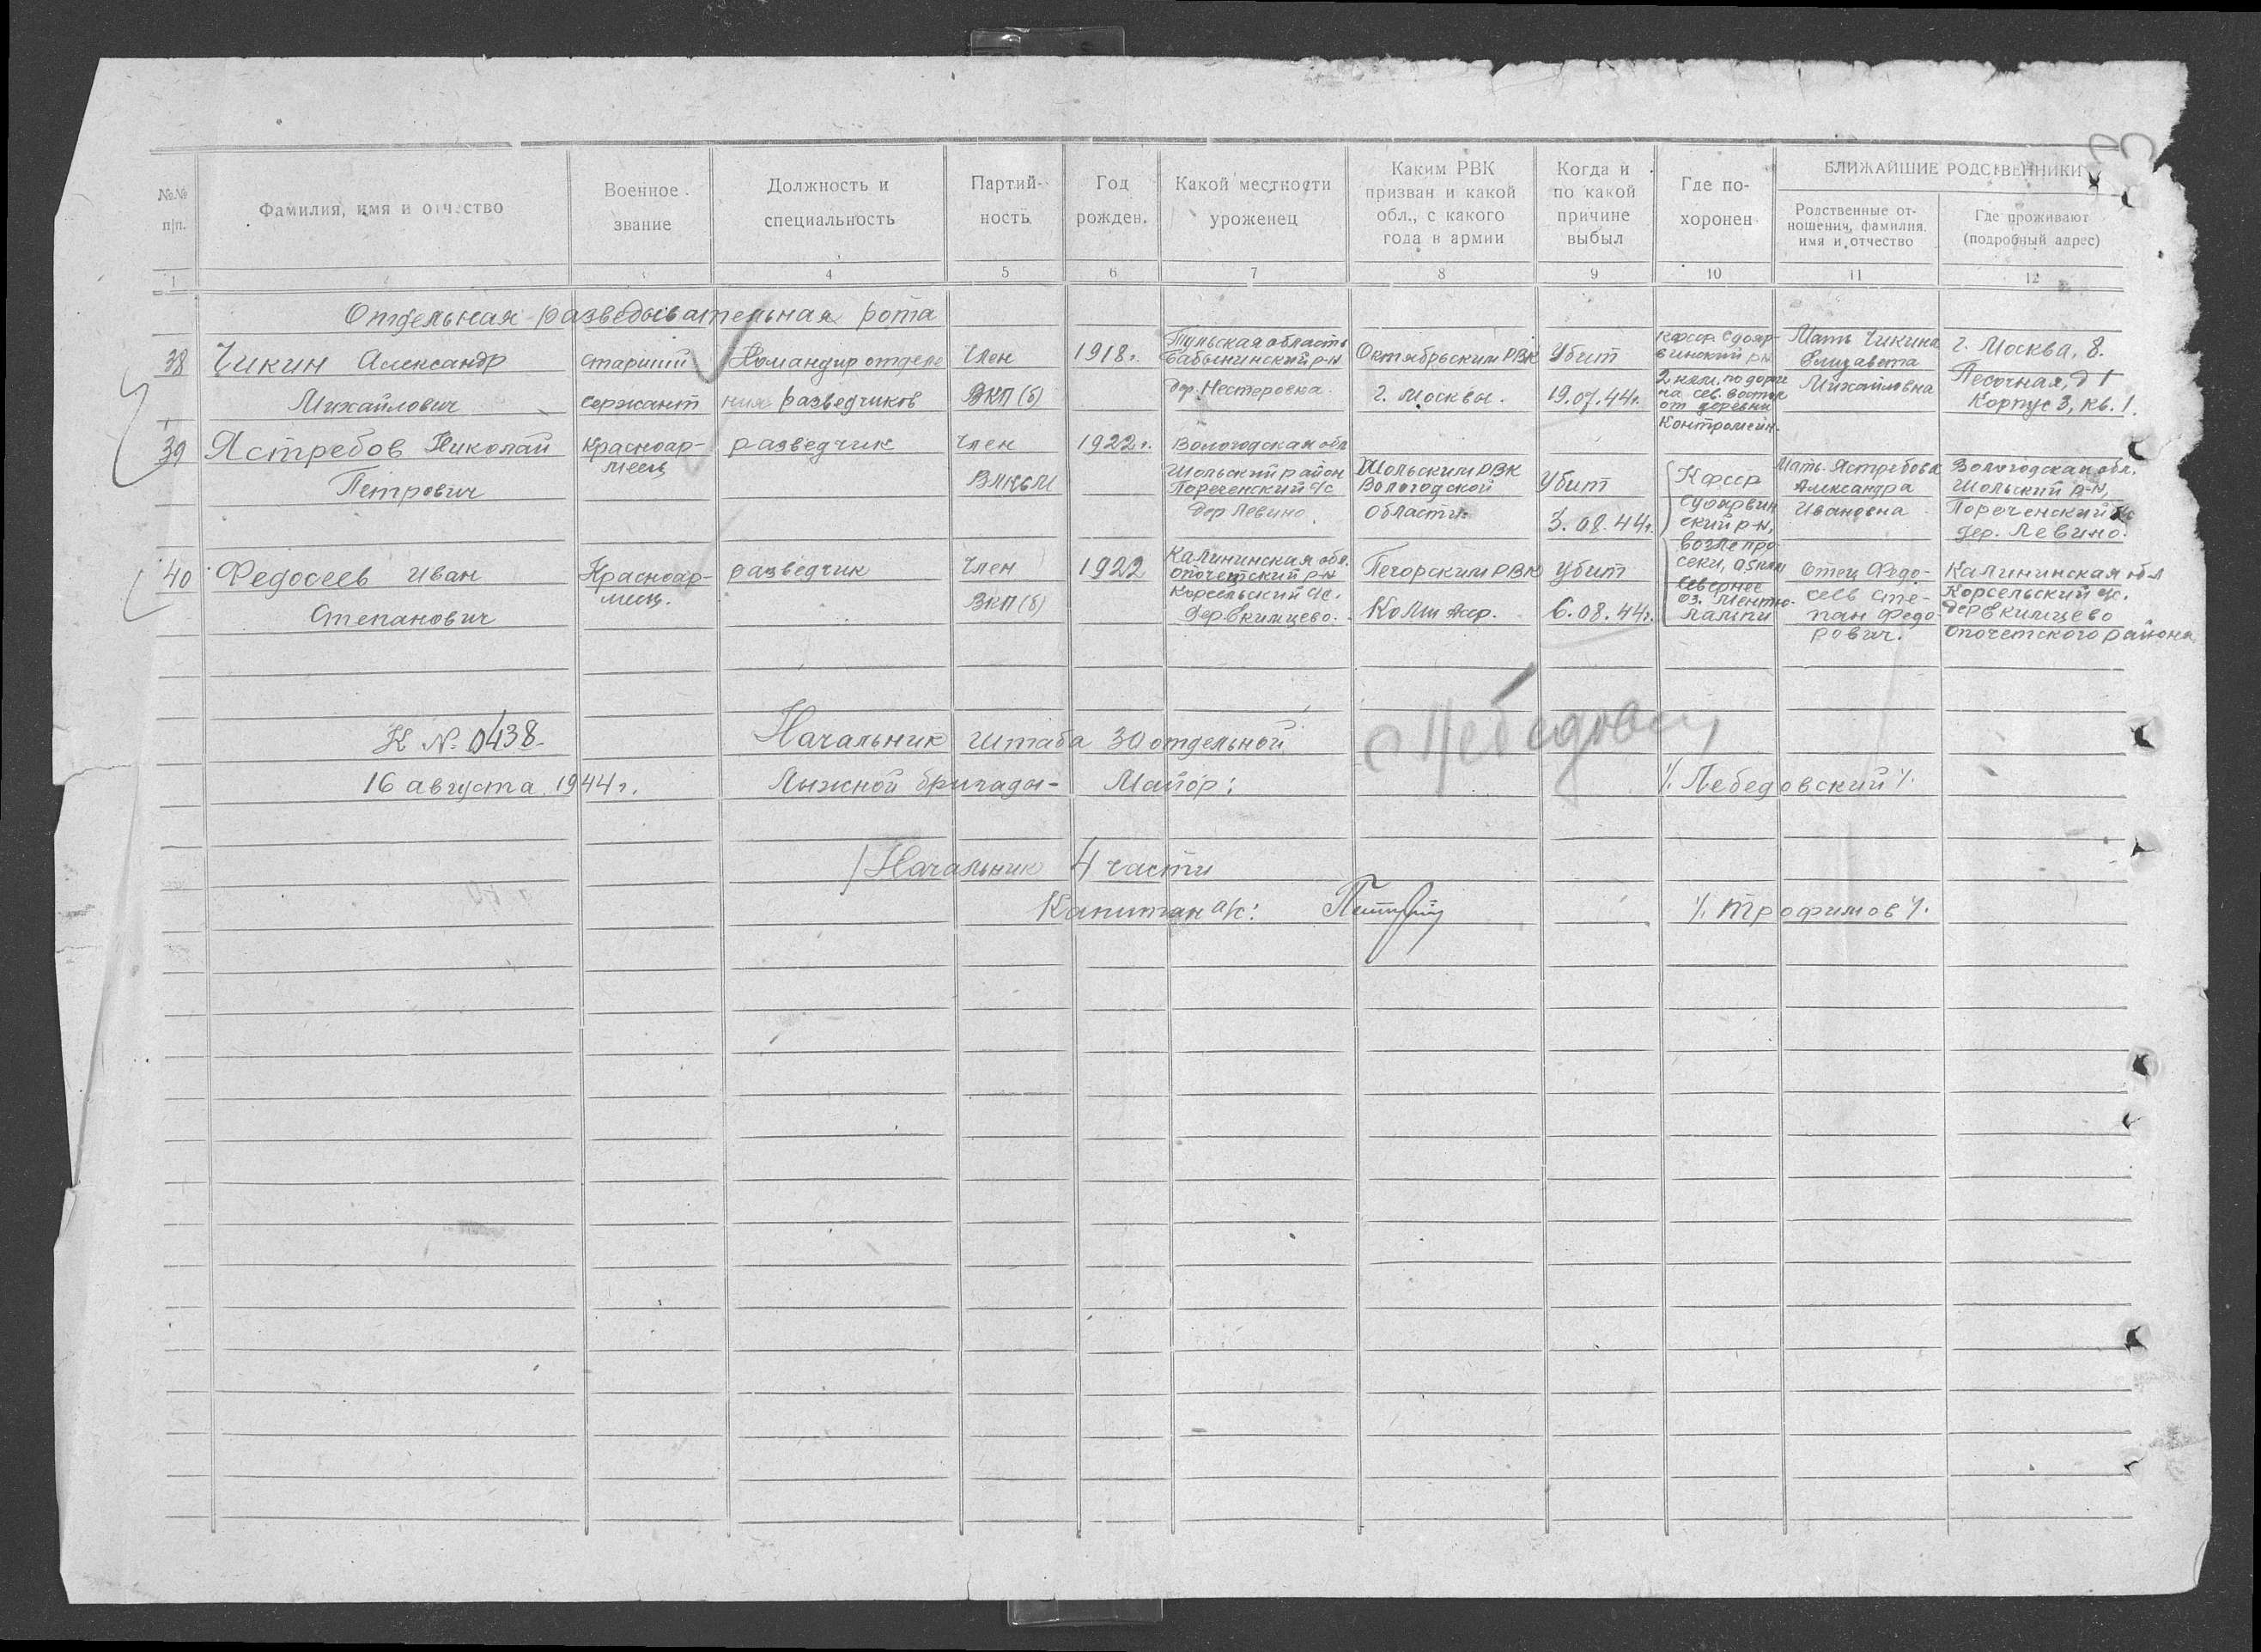 №№ п/п.
Фамилия, имя и отчество
Военное звание
Должность и специальность
Партий-ность
Год рожден.
Какой местности уроженец
Каким РВК призван и какой обл., с какого года в армии
Когда и по какой причине выбыл
Где по-хоронен
БЛИЖАЙШИЕ РОДСТВЕННИКИ
Родственные от-ношения, фамилия, имя и отчество
Где проживают (подробный адрес)
1 2 3 4 5 6 7 8 9 10 11 12
Отдельная разведывательная рота
38
Чикин Александр
Михайлович
старший
сержант
Командир отделе
ния разведчиков
Член
ВКП(б)
1918г.
Тульская область
Бабынинский р-н
дер. Нестеровка.
Октябрьским РВК
г. Москвы.
Убит
19.07.44г.
КФССР Суояр-
винский р-н
2 клм. по дороге
на сев. восток
от деревни
Мать Чикина
Елизавета
Михайловна
г. Москва, 8.
Песочная, д 1
Корпус 3, кв. 1.
39
Ястребов Николай
Петрович
Красноар-
меец
разведчик
Член
ВЛКСМ
1922г.
Вологодская обл
Шольский район
Пореченский с/с
дер Левино
Шольским РВК
Вологодской
области.
Убит
3.08.44г.
КФССР
Суоярвин
ский р-н,
возле про
секи,
севернее
оз.
Мать Ястребова
Александра
Ивановна
Вологодская обл.
Шольский р-н,
Пореченский с/с
дер. Левино.
40
Федосеев Иван
Степанович
Красноар-
меец.
разведчик
Член
ВКП(б)
1922
Калининская обл.
Опочецкий р-н
Корсельский с/с.
дер Екимцево.
Печорским РВК
Коми АССР.
Убит
6.08.44г.
Отец Федо-
сеев Сте-
пан Федо-
рович.
Калининская обл
Корсельский с/с.
дер Екимцево
Опочетского района
К № 0438.
Начальник штаба 30 отдельной
16 августа 1944г.
Лыжной бригады- Майор:
/. Лебедовский /.
/Начальник 4 части
Капитан а/с:
/. Трофимов /.